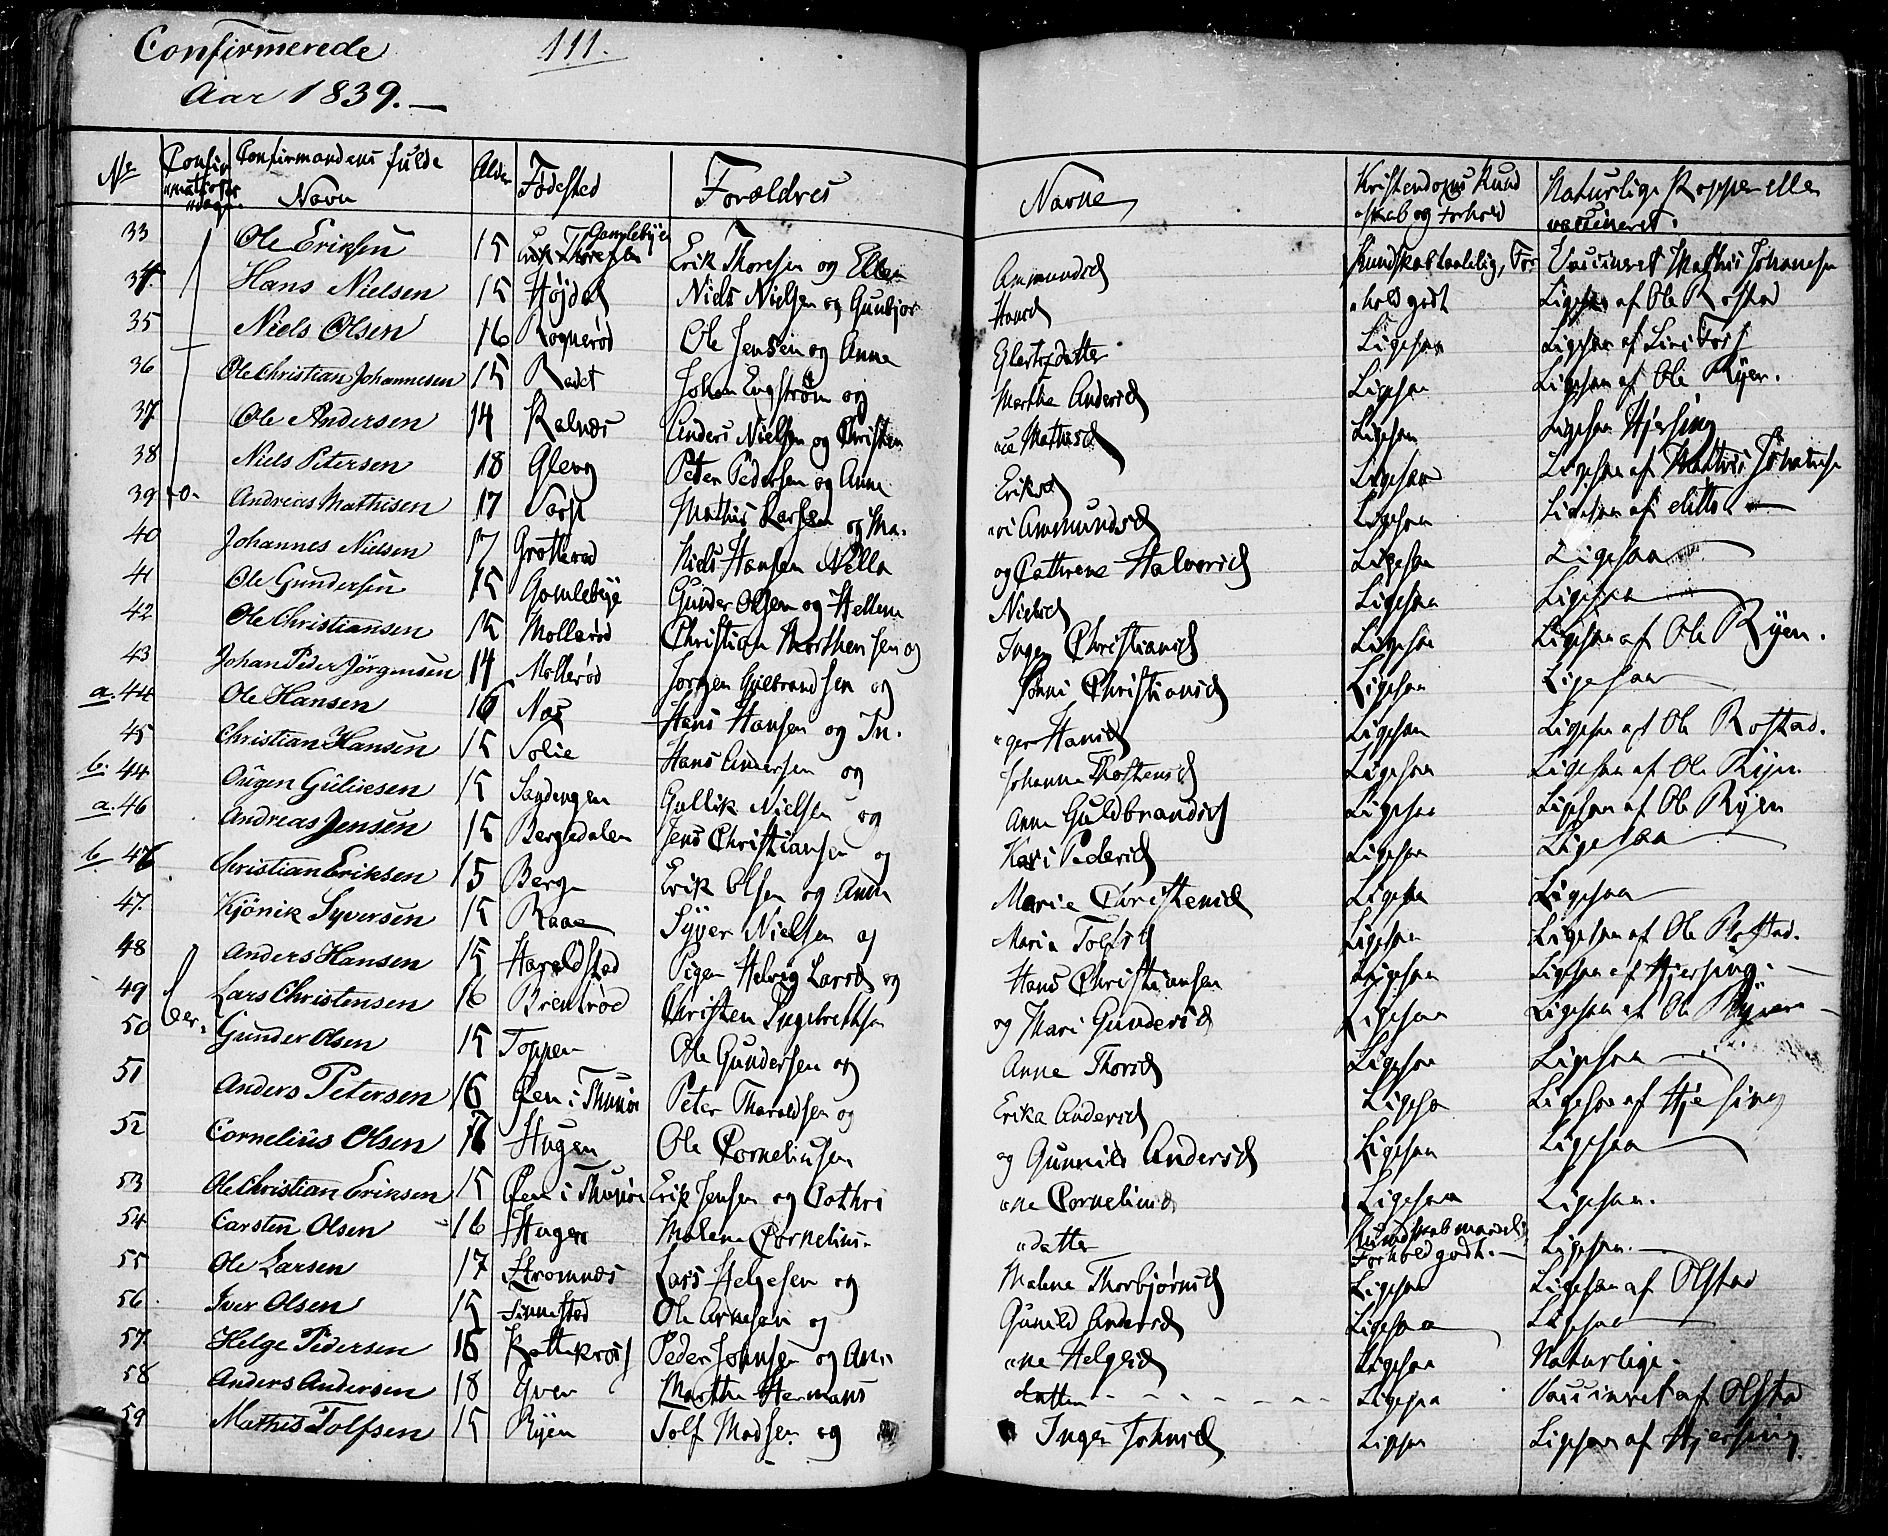 Confirmerede 111.
Aar 1839.
No Confir Confirmandens fulde Alder Fødested Forældres Navne Kristendoms Kund Naturlige Kopper eller
"mations "dage Navn "skab og Forhold vaccineret.
33 Ole Eriksen 15 Gamlebyen Erik Thoresen og Ellen Ammundsd Kundskab taalelig, For Vaccineret Mathis Johannesen
34. Hans Nielsen 15 Højdal Niels Nielsen og Gunbjor Hansd "hold godt Ligesaa af Ole Rostad
35 Niels Olsen 16 Rognerød Ole Jensen og Anne Ejlertsdatter Ligesaa Ligesaa af
36 Ole Christian Johannesen 15 Rødet Johan Engstrøm og Marthe Andersd Ligesaa Ligesaa af Ole Ryen.
37 Ole Andersen 14 Kalnæs Anders Nielsen og Christen "ce Mathisd Ligesaa Ligesaa Hjersing
38 Niels Petersen 18 Gleng Peter Pedersen og Anne Eriksd Ligesaa Ligesaa af Mathis Johannesen
39 Andreas Mathisen 17 Mathis Larsen og Ma- "ri Ammundsd Ligesaa Ligesaa af ditto
40 Johannes Nielsen 17 Grotterød Niels Hansen og Cathrene Halvorsd Ligesaa Ligesaa
41 Ole Gundersen 15 Gamlebye Gunder Olsen og Hellene Nielsd Ligesaa Ligesaa
42 Ole Christiansen 15 Mollerød Christian Morthensen og Inger Christiansd Ligesaa Ligesaa af Ole Ryen.
43 Johan Peder Jørgensen 14 Mollerød Jørgen Gulbrandsen og Christiansd Ligesaa Ligesaa
a. 44 Ole Hansen 16 Næs Hans Hansen og In- "ger Hansd Ligesaa Ligesaa af Ole Rostad.
45 Christian Hansen 15 Solie Hans Andersen og Johanne Thostensd Ligesaa Ligesaa af Ole Ryen.
b. 44 Gulicsen 15 Sandengen Gullik Nielsen og Anne Guldbrandsd Ligesaa Ligesaa af Ole Ryen
a. 46 Andreas Jensen 15 Bergedalen Jens Christiansen og Kari Pedersd Ligesaa Ligesaa
b. 46 Christian Eriksen 15 Berg Erik Olsen og Anne Marie Christensd Ligesaa Ligesaa
47. Kjönik Syversen 15 Raae Syver Nielsen og Maria Tolfsd Ligesaa Ligesaa af Ole Rostad.
48 Anders Hansen 15 Haraldstad Pigen Helvig Larsd og Hans Christiansen Ligesaa Ligesaa af Hjersing.
49 Lars Christensen 16 Brentrød Christen Ingebrethsen og Mari Gundersd Ligesaa Ligesaa af Ole Ryen
50 Gunder Olsen 15 Toppen Ole Gundersen og Anne Thorsd Ligesaa Ligesaa
51 Anders Petersen 16 Øen i Thunøe Peter Tharaldsen og Erika Andersd Ligesaa Ligesaa af Hjersing
52 Cornelius Olsen 17 Hagen Ole Corneliusen og Gunnild Andersd Ligesaa Ligesaa
53 Ole Christian Eriksen 15 Øen i Thunøe Erik Jensen og Cathri "ne Corneliusd Ligesaa Ligesaa.
54 Carsten Olsen 16 Hagen Malene Cornelius- "datter Kundskab maadelig, Forhold godt. Ligesaa.
55 Ole Larsen 17 Stromnæs Lars Helgesen og Malene Thorbjørnsd Ligesaa Ligesaa af Olstad
56. Iver Olsen 15 Tinnestad Ole Arnesen og Gunild Andersd Ligesaa Ligesaa
57. Helge Pedersen 16 Peder Johnsen og An- "ne Helgesd Ligesaa Naturlige.
58 Anders Andersen 18 Yven Marthe Hermans datter Ligesaa Vaccineret af Olstad
59 Mathis Tolfsen 15 Ryen Tolf Madsen og Inger Johnsd Ligesaa Ligesaa af Hjersing.